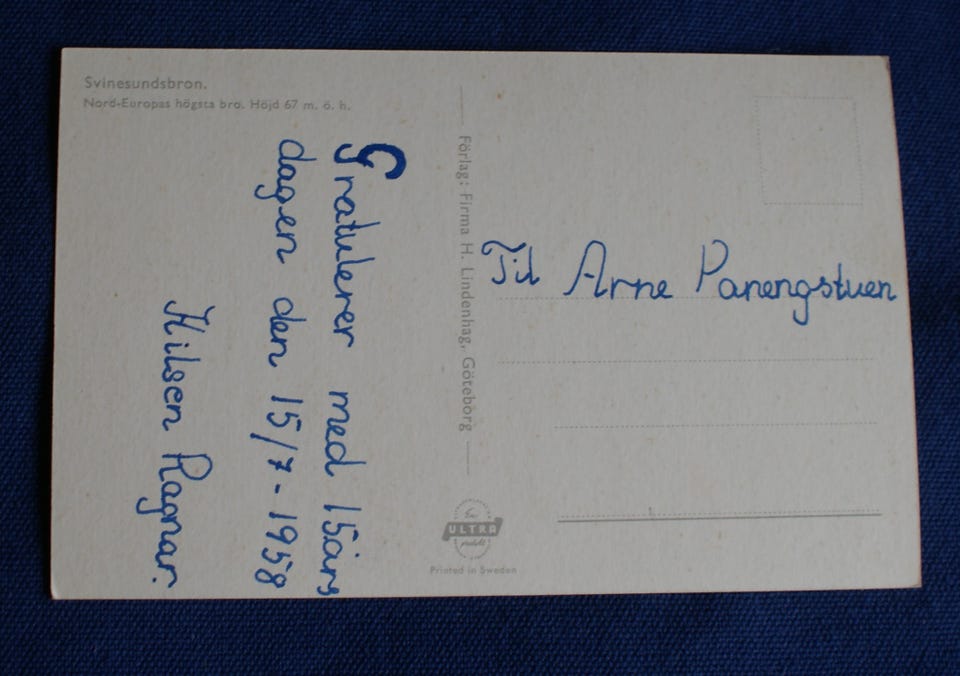 Svinesundsbron.
Nord-Europas högsta bro. Höjd 67 m. ö. h.
Gratulerer med 15års
dagen den 15/7-1958
Hilsen Ragnar.
Förlag: Firma H. Lindenhag, Göteborg
En
ULTRA
produkt
Printed in Sweden
Til Arne Panengstuen